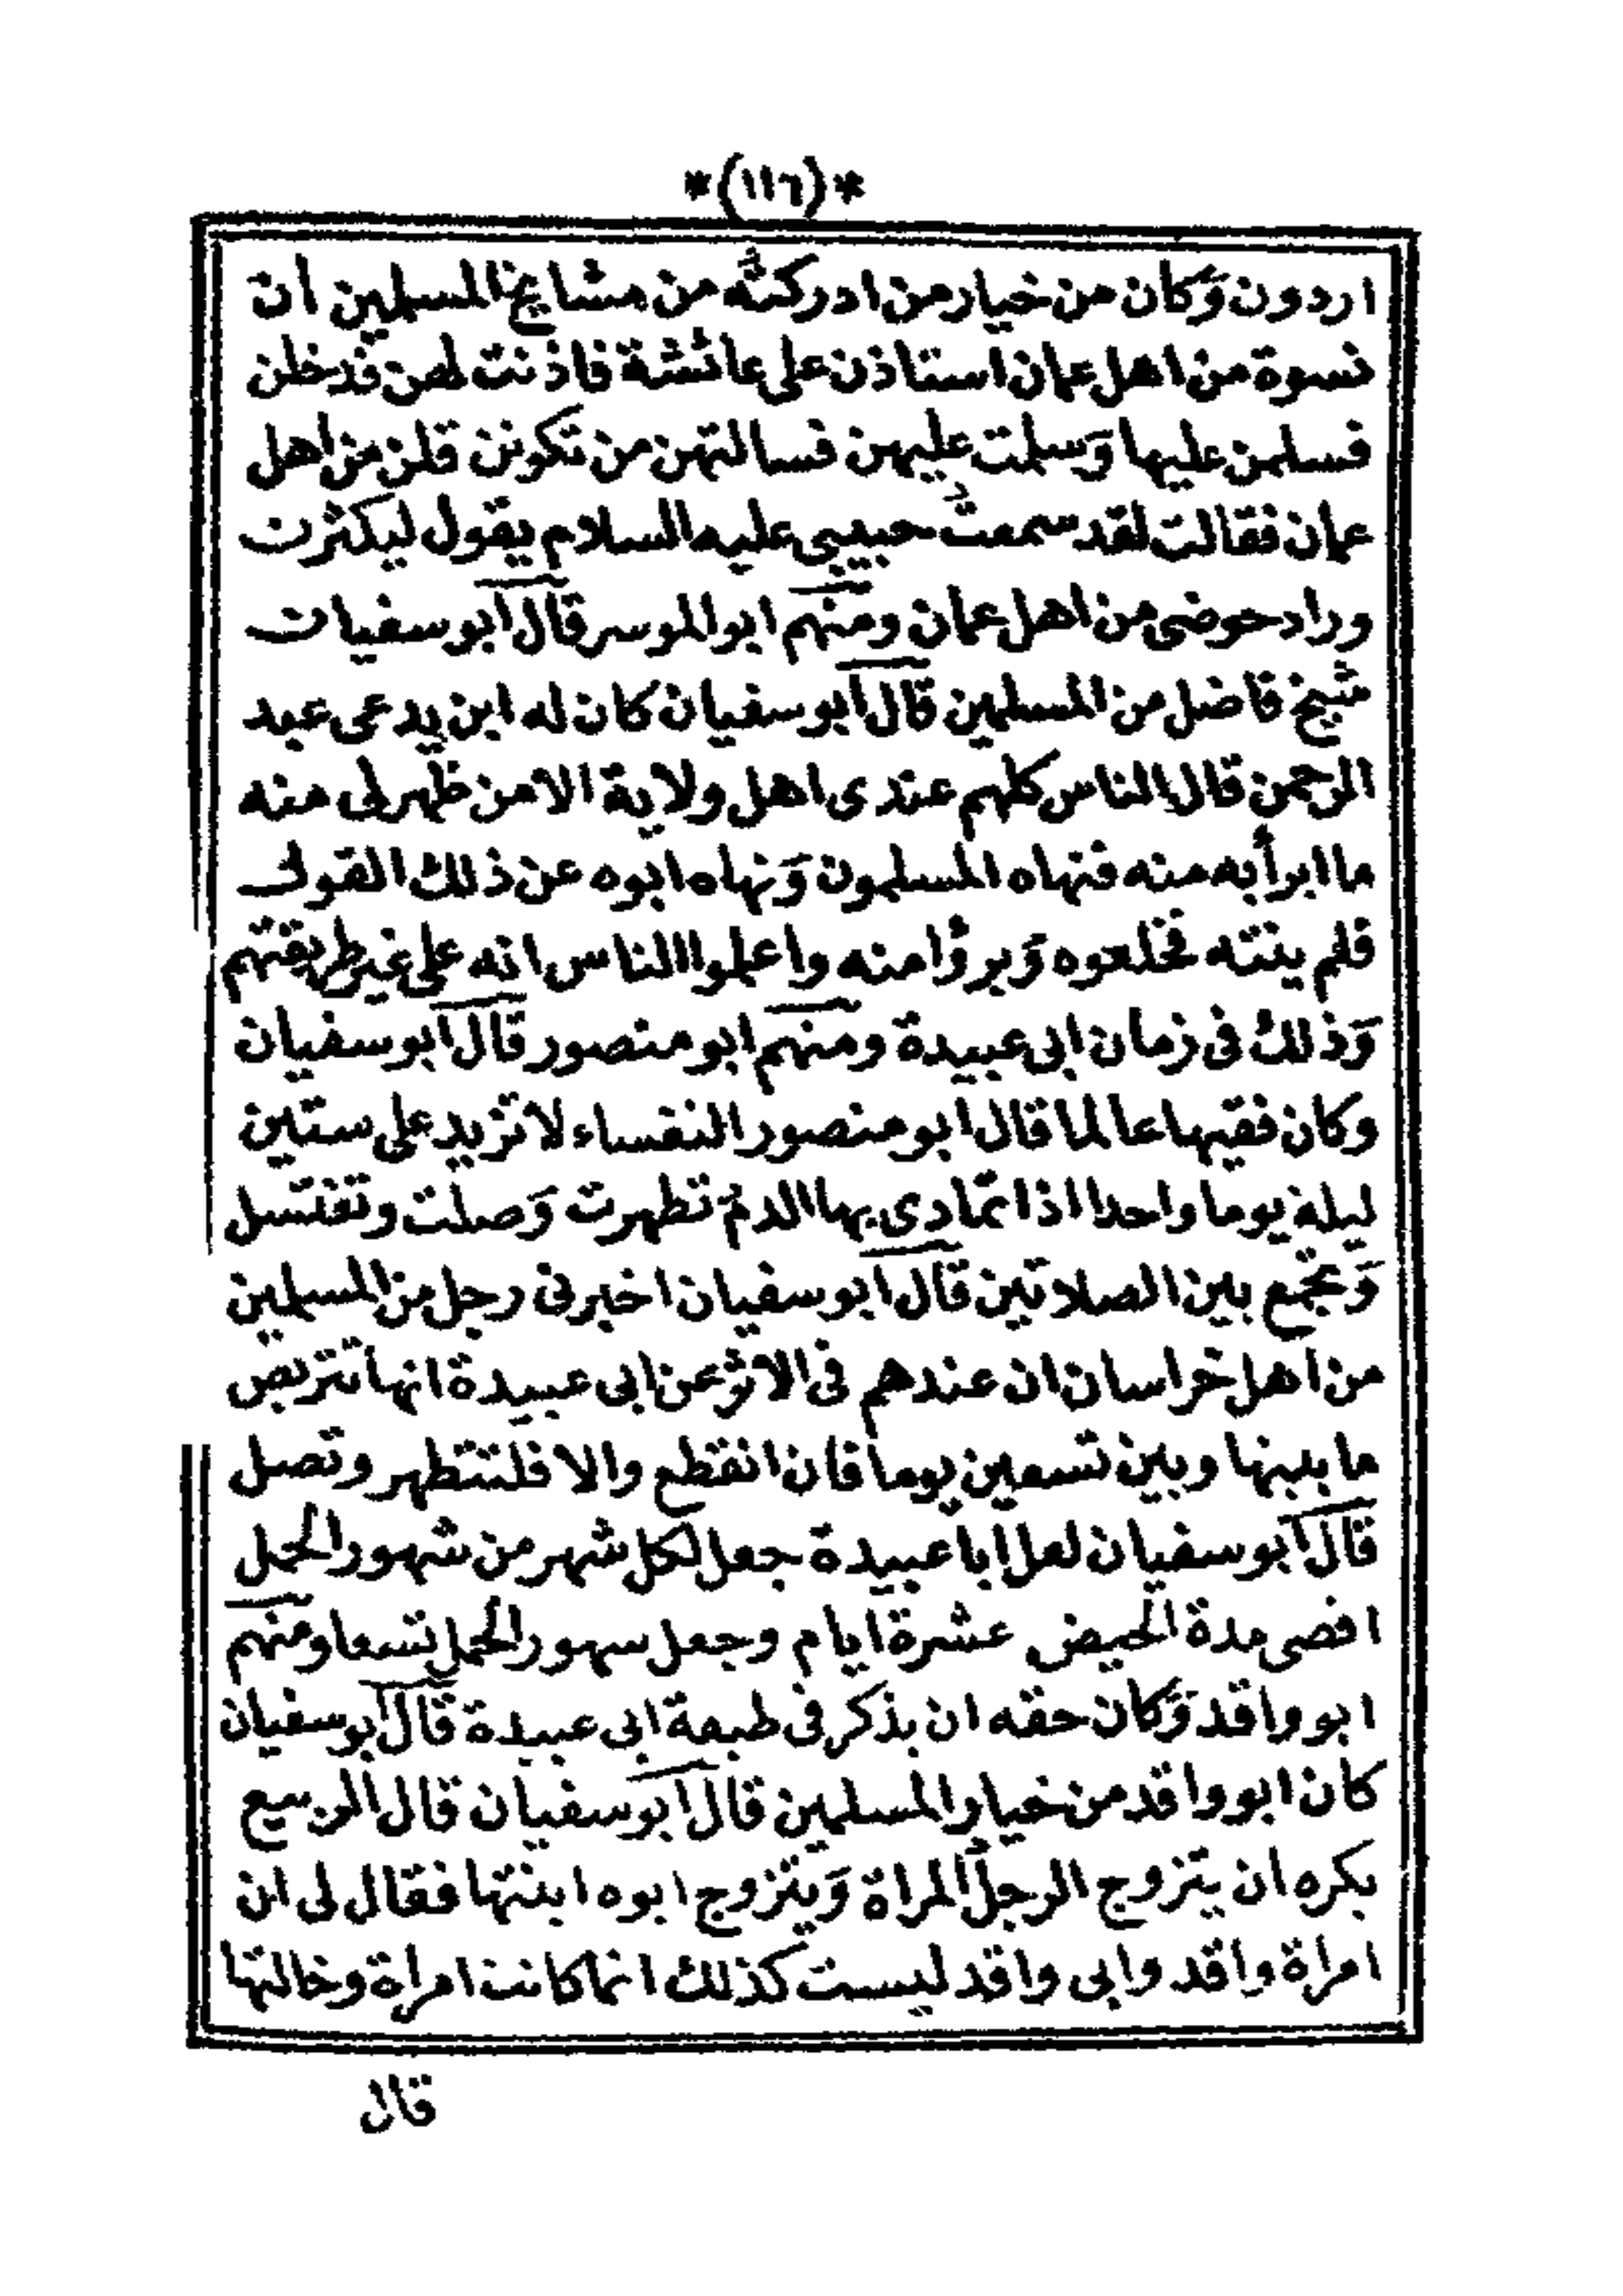 *(١١٦)*
اردون وَكان من خيار من ادركتُه من مشايخنا المسلمين ان
نسوة من اهل عمان استاذن على عائشة فاذنت لهن فدخلن
فسلمن عليها وَسلمت عليهن فسالتهن من تكونن قلن من اهل
عمان فقالت لقد سمعتُ حبيبى عليه السلام يقول ليكثرن
وراد حوضى من اهل عمان ومنهم ابو الموسر قال ابو سفيان
شيخ فاضل من المسلمين قال ابو سفيان كان له ابن يدعى عبد
الرحمن قال الناس كلهم عندى اهل ولاية الا من ظهر لى منه
ما ابرأ به منه فنهاه المسلمون وَنهاه ابوه عن ذلك القول
فلم ينته فخلعوه وَبرؤا منه واعلموا الناس انه على غير طريقتهم
وَذلك فى زمان ابى عبيدة ومنهم ابو منصور قال ابو سفيان
وكان فقيها عالما قال ابو منصور النفساء لا تزيد على ستين
ليلة يوما واحدا اذا تمادى بها الدم تطهرت وَصلت وتغتسل
وَتجمع بين الصلاتين قال ابو سفيان اخبرنى رجل من المسلمين
من اهل خراسان ان عندهم فى الاثر عن ابى عبيدة انها تتربص
ما بينها وبين تسعين يوما فان انقطع والا فلتتطهر وتصل
قال ابو سفيان لعل ابا عبيدة جعل لكل شهر من شهور الحمل
اقصى مدة الحيض عشرة ايام وجعل سهور الحمل تسعا ومنهم
ابو واقد وَكان حقه ان يذكر فى طبعة ابى عبيدة قال ابو سفيان
كان ابو واقد من خيار المسلمين قال ابو سفيان قال الربيع
يكره ان يتزوج الرجل المراة وَيتزوج ابوه ابنتها فقال لى ان
امراة واقد وابى واقد ليست كذلك انما كانت امراة وخالتها
قال